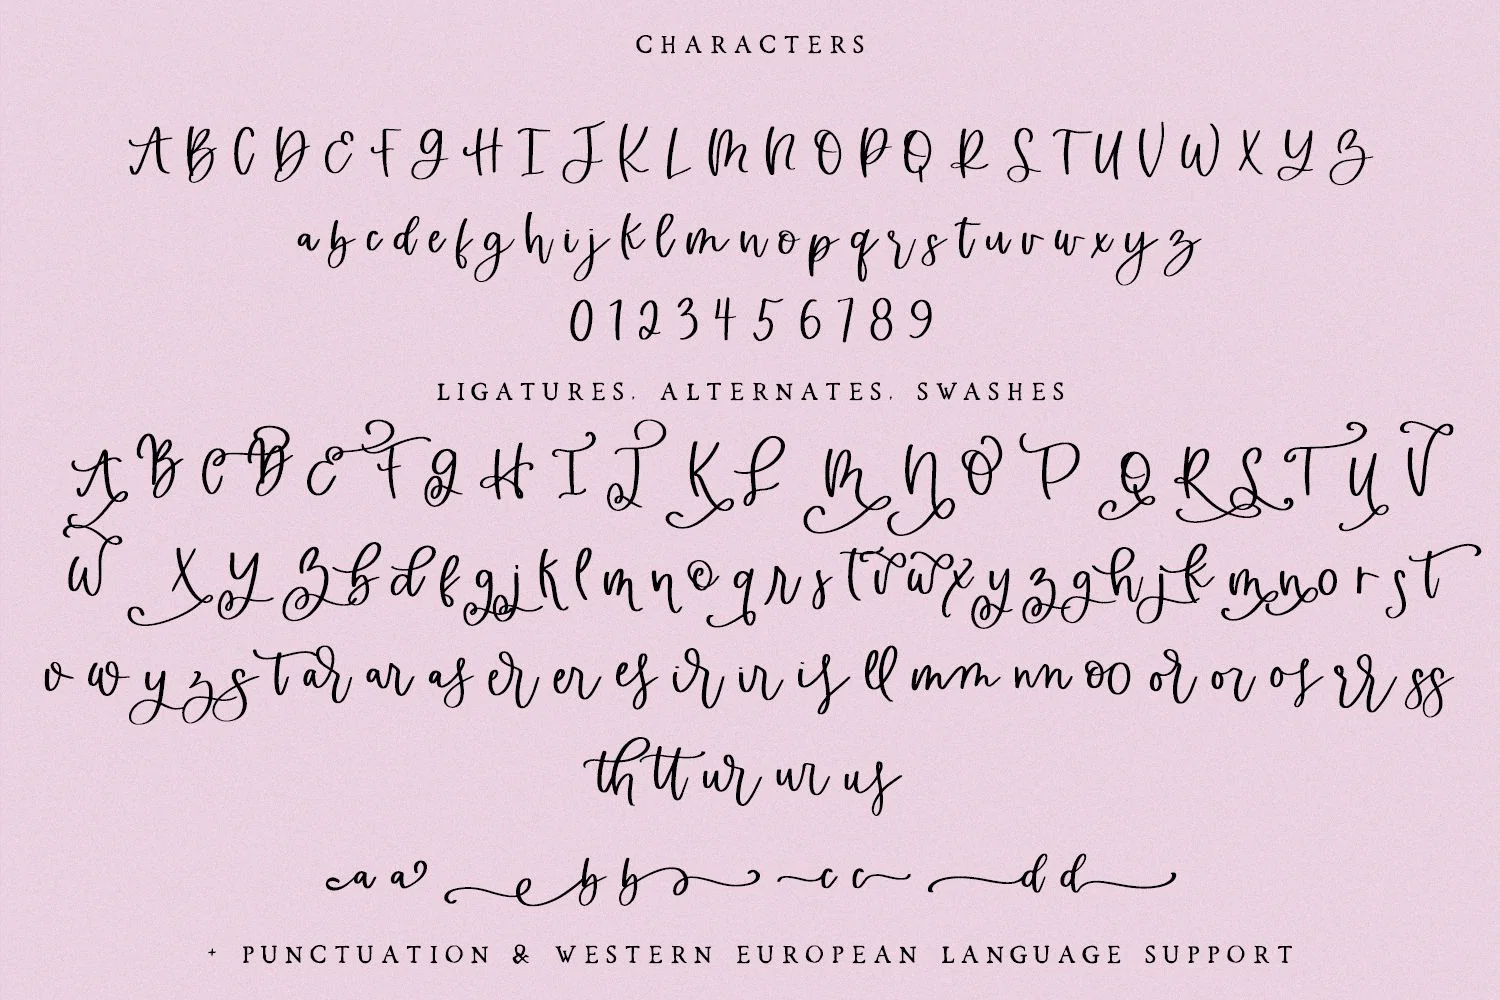 CHARACTERS
A B C D E F G H I J K L M N O P Q R S T U V W X Y Z
a b c d e f g h i j k l m n o p q r s t u v w x y z
0 1 2 3 4 5 6 7 8 9
LIGATURES, ALTERNATES, SWASHES
A B C D E F G H I J K L M N O P Q R S T U V
W X Y Z b d f g j k l m n o q r s t v w x y z g h j k m n o r s t
v w y z s t ar ar as er er es ir ir is ll mm nn oo or or os rr ss
th tt ur ur us
a a b b c c d d
+ PUNCTUATION & WESTERN EUROPEAN LANGUAGE SUPPORT